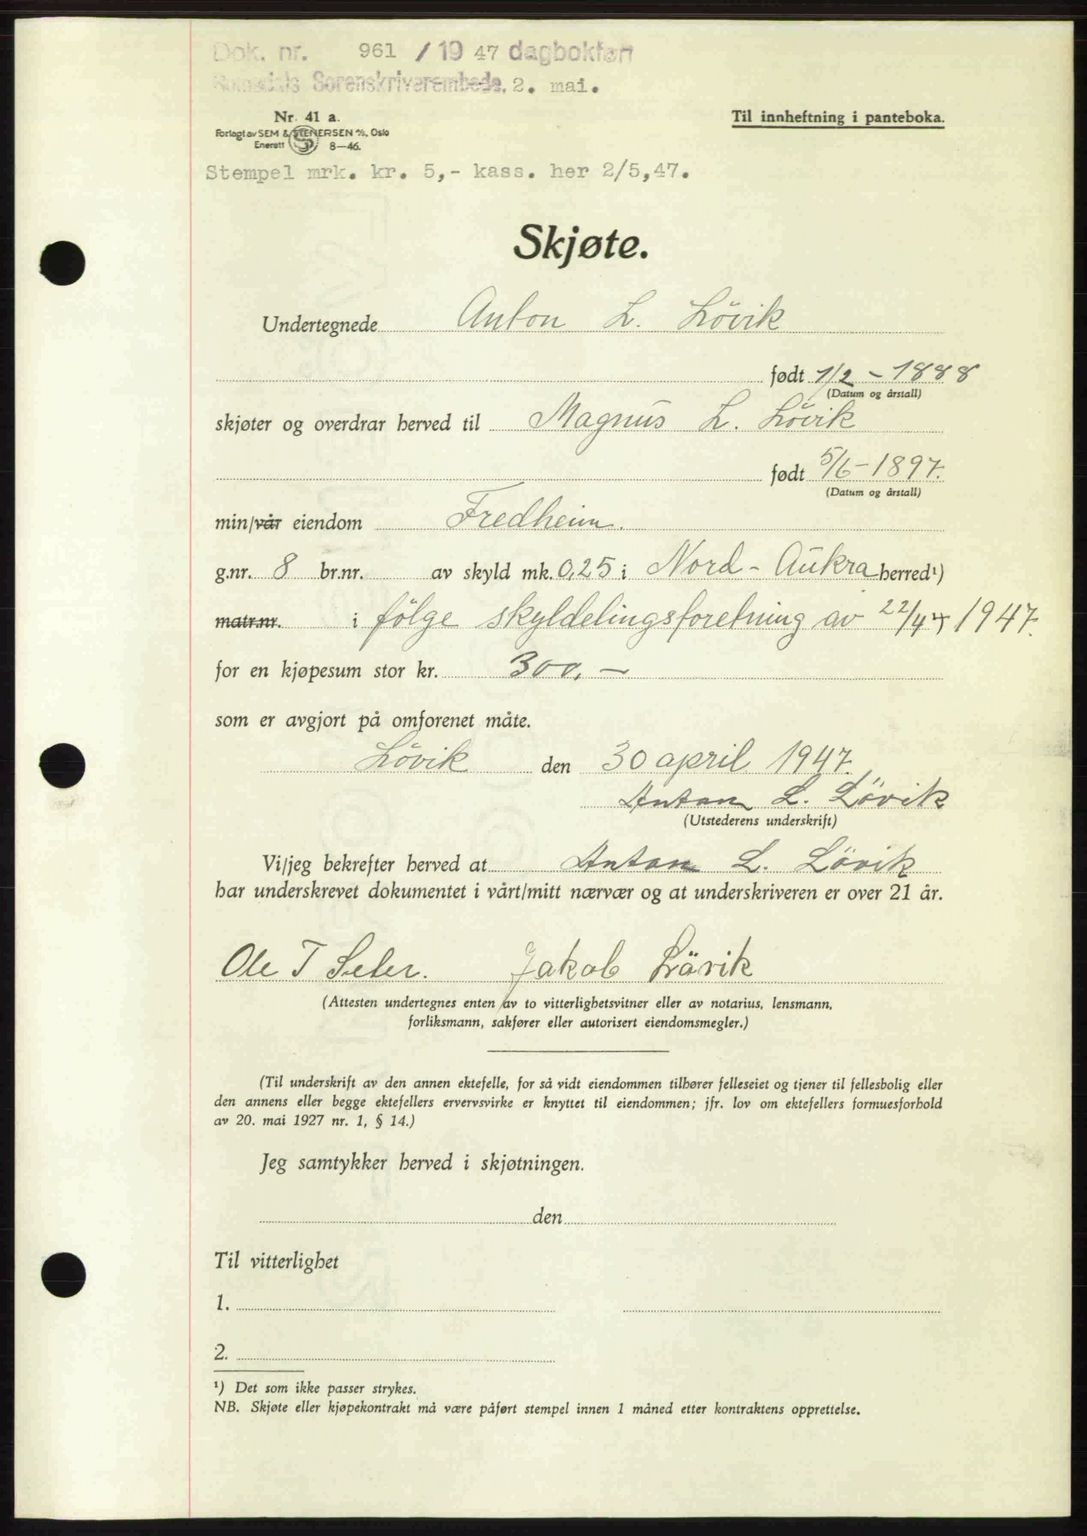 Dok. nr. 961 / 19 47 dagbokført
Romsdals Sorenskriverembede, 2. mai.
Nr. 41 a.
Til innheftning i panteboka.
Forlagt av SEM & STENERSEN A/S, Oslo
Enerett 8—46.
Stempel mrk. kr. 5,- kass. her 2/5,47.
Skjøte.
Undertegnede Anton L. Lövik
født 1/2 - 1888
(Datum og årstall)
skjøter og overdrar herved til Magnus L. Lövik
født 5/6 - 1897.
(Datum og årstall)
min/vår eiendom Fredheim.
g.nr. 8 br.nr. av skyld mk. 0,25 i Nord - Aukra herred¹)
matr.nr. i følge skyldelingsforetning av 22/4 1947.
for en kjøpesum stor kr. 300,—
som er avgjort på omforenet måte.
Lövik den 30 april 1947.
Anton L. Lövik
(Utstederens underskrift)
Vi/jeg bekrefter herved at Anton L. Lövik
har underskrevet dokumentet i vårt/mitt nærvær og at underskriveren er over 21 år.
Ole T Seter. Jakob Lövik
(Attesten undertegnes enten av to vitterlighetsvitner eller av notarius, lensmann,
forliksmann, sakfører eller autorisert eiendomsmegler.)
(Til underskrift av den annen ektefelle, for så vidt eiendommen tilhører felleseiet og tjener til fellesbolig eller
den annens eller begge ektefellers ervervsvirke er knyttet til eiendommen; jfr. lov om ektefellers formuesforhold
av 20. mai 1927 nr. 1, § 14.)
Jeg samtykker herved i skjøtningen.
den
Til vitterlighet
1.
2.
¹) Det som ikke passer strykes.
NB. Skjøte eller kjøpekontrakt må være påført stempel innen 1 måned etter kontraktens opprettelse.